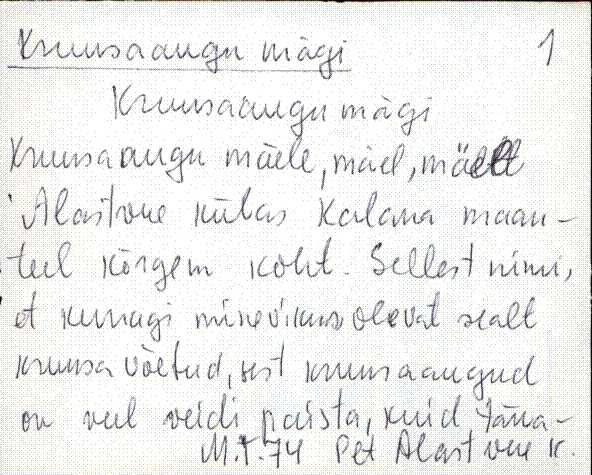 Kruusaaugu mägi 1
Kruusaaugu mägi
Kruusaaugu mäele, mäel, mäelt
Alastvere külas Kalana maan-
teel kõrgem koht. Sellest nimi,
et kunagi minevikus olevat sealt
kruusa võetud, sest kruusaaugud
on veel veidi paista, kuid täna-
M.T. 74 Plt Alastvere k.